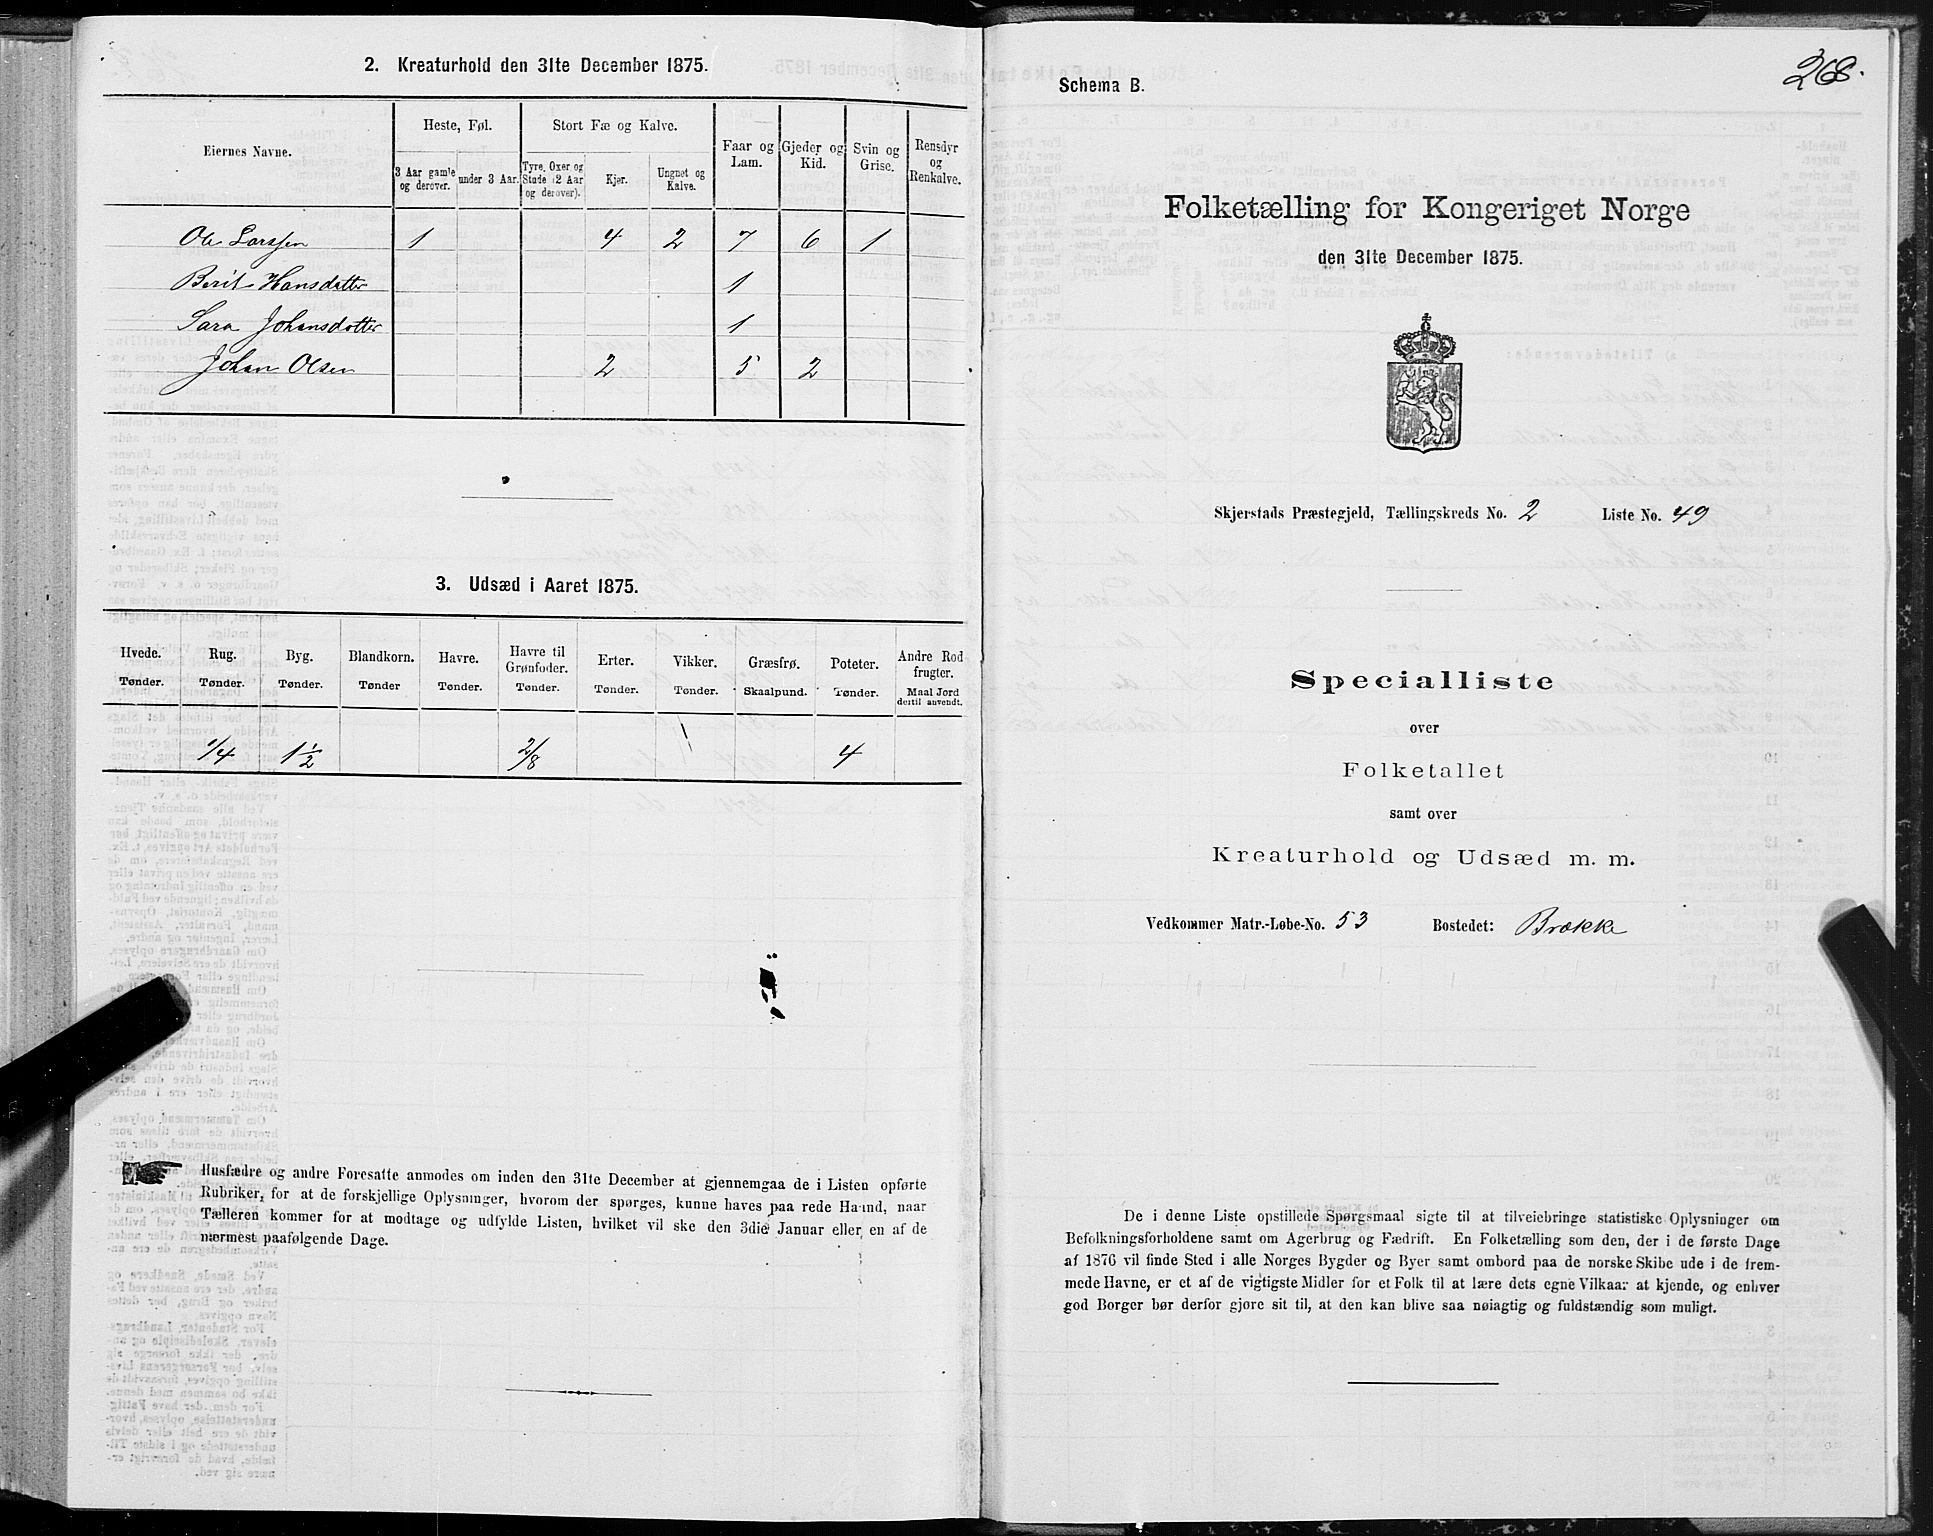 2. Kreaturhold den 31te December 1875.
Eiernes Navne.
Heste, Føl.
Stort Fæ og Kalve.
Faar og Lam.
Gjeder og Kid.
Svin og Grise.
Rensdyr og Renkalve.
3 Aar gamle og derover.
under 3 Aar.
Tyre, Oxer og Stude (2 Aar og derover).
Kjør.
Ungnet og Kalve.
Ole Larssen 1 4 2 7 6 1
Berit Hansdatter 1
Sara Johansdatter 1
Johan Olsen 2 5 2
3. Udsæd i Aaret 1875.
Hvede. Rug. Byg. Blandkorn. Havre. Havre til Grønfoder. Erter. Vikker. Græsfrø. Poteter. Andre Rodfrugter.
Tønder. Tønder. Tønder. Tønder Tønder. Tønder. Tønder. Tønder. Skaalpund. Tønder. Maal Jord dertil anvendt.
1/4 1 1/2 2/8 4
Husfædre og andre Foresatte anmodes om inden den 31te December at gjennemgaa de i Listen opførte
Rubriker, for at de forskjellige Oplysninger, hvorom der spørges, kunne haves paa rede Haand, naar
Tælleren kommer for at modtage og udfylde Listen, hvilket vil ske den 3die Januar eller en af de
nærmest paafølgende Dage.
268.
Schema B.
Folketælling for Kongeriget Norge
den 31te December 1875.
Skjerstads Præstegjeld, Tællingskreds No. 2 Liste No. 49
Specialliste
over
Folketallet
samt over
Kreaturhold og Udsæd m. m.
Vedkommer Matr.-Løbe-No. 53 Bostedet: Brække
De i denne Liste opstillede Spørgsmaal sigte til at tilveiebringe statistiske Oplysninger om
Befolkningsforholdene samt om Agerbrug og Fædrift. En Folketælling som den, der i de første Dage
af 1876 vil finde Sted i alle Norges Bygder og Byer samt ombord paa de norske Skibe ude i de frem-
mede Havne, er et af de vigtigste Midler for et Folk til at lære dets egne Vilkaar at kjende, og enhver
god Borger bør derfor gjøre sit til, at den kan blive saa nøiagtig og fuldstændig som muligt.